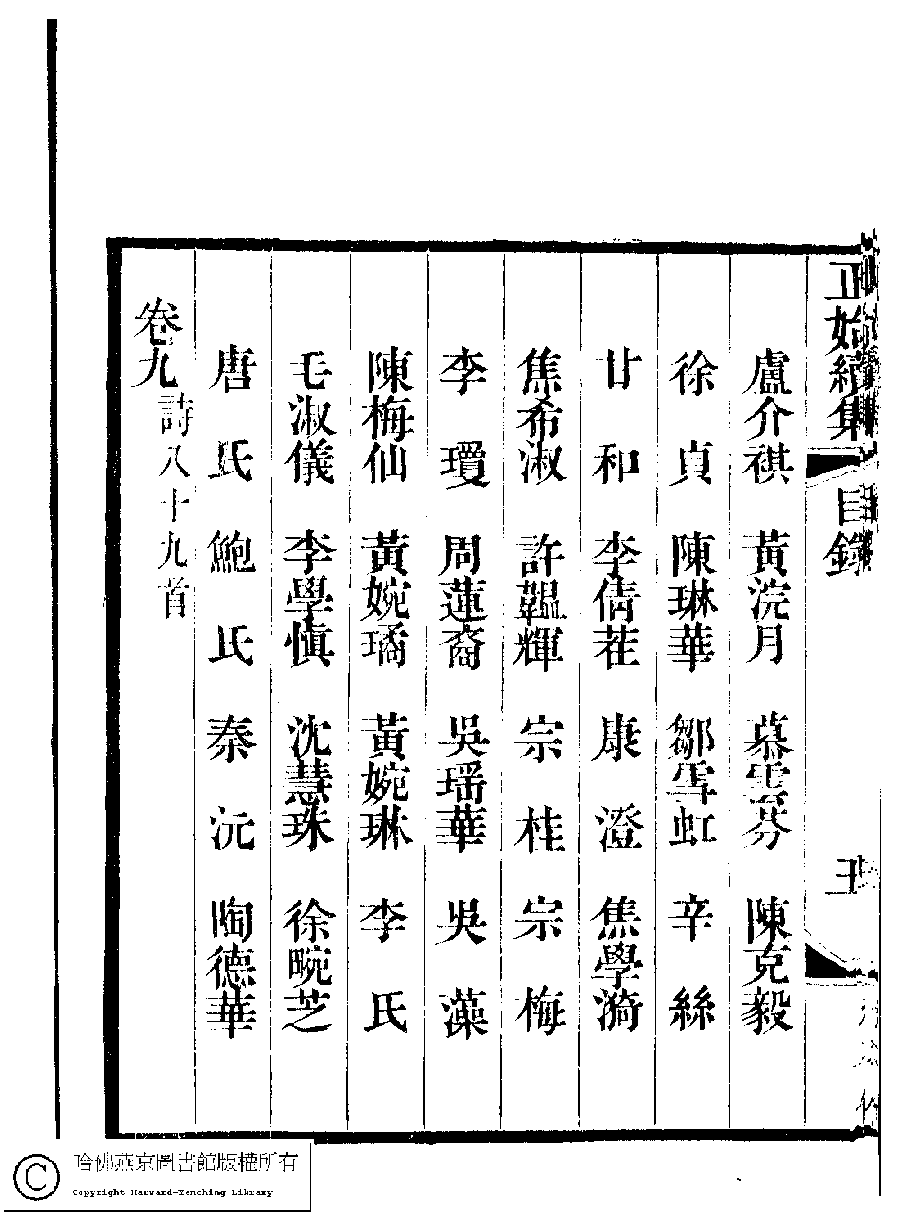 正始續集 目錄
盧介祺 黃浣月 慕雲芬 陳克毅
徐貞 陳琳華 鄒雪虹 辛絲
甘和 李倩茬 康澄 焦學漪
焦希淑 許韞輝 宗桂 宗梅
李瓊 周蓮裔 吳瑶華 吳藻
陳梅仙 黃婉璚 黃婉琳 李氏
毛淑儀 李學慎 沈慧珠 徐畹芝
唐氏 鮑氏 秦沅 陶德華
卷九 詩八十九首
哈佛燕京圖書館版權所有
Copyright Harvard-Yenching Library